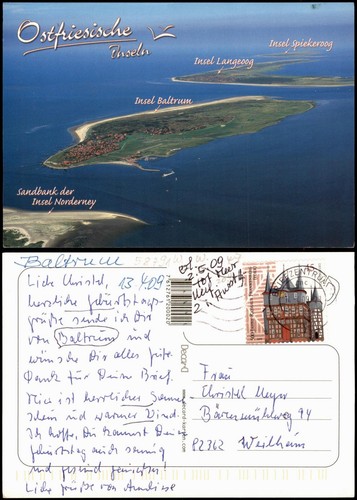 Ostfriesische
Inseln
Insel Spiekeroog
Insel Langeoog
Insel Baltrum
Sandbank der
Insel Norderney
Baltrum
Liebe Christel, 13.4.09
herzliche Geburtstags-
grüße sende ich Dir
von Baltrum und
wünsche Dir alles Gute.
Dank für Deinen Brief.
Hier ist herrlicher Sonnen-
schein und warmer Wind.
Ich hoffe, Du kannst Deinen
Geburtstag auch sonnig
und gesund genießen!
Liebe Grüße von Anneliese
Frau
Christel Meyer
94
82362 Weilheim